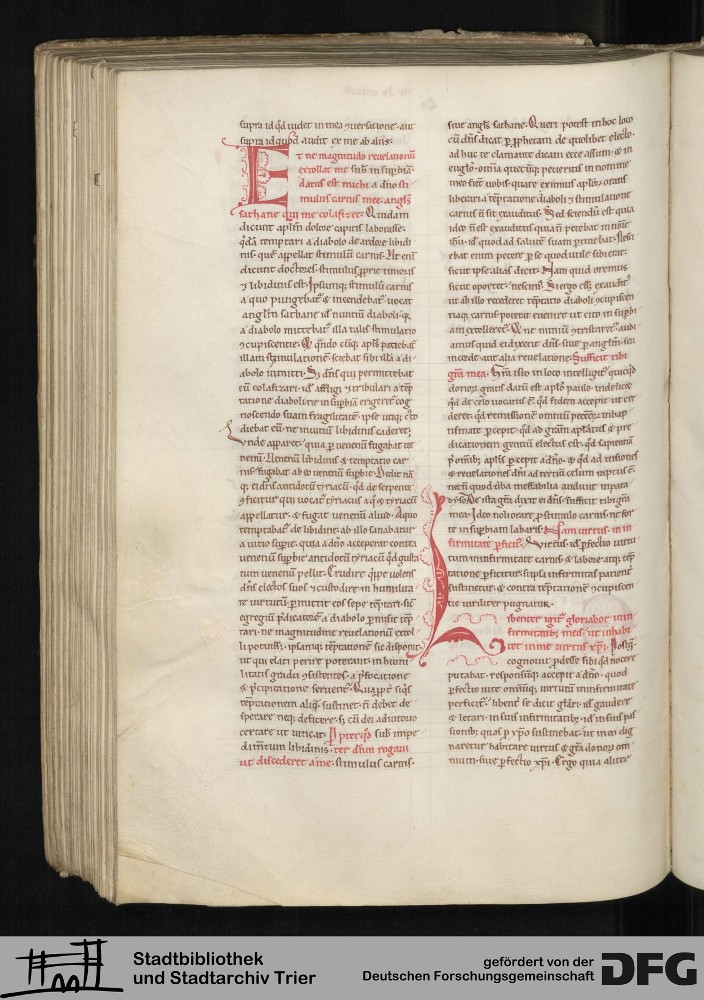 supra id qd uidet in mea ↄuersatione · aut
supra id quod audit ex me ab aliis:
Et ne magnitudo reuelationū
extollat me sub in supbia
datus est michi a dño sti
mulus carnis mee · angls
sathane qui me colafizet · Quidam
dicunt aplm dolore capitis laborasse
qda temptari a diabolo de ardore libidi
nis · que appellat stimulū carnis ·
dicunt doctores · stimulus pprie timoris
⁊ libidinis est · Ipsumq stimulū carnis
a quo pungebat ⁊ incendebat · uocat
anglm sathane id nuntiū diaboli · q
a diabolo mittebat illa talis stimulatio
ↄcupiscentie · cūq apls patiebat
illam stimulationē · sciebat sibi illā a di
abolo inmitti · dñs qui permittebat
eū colafizari · id affligi ⁊ tribulari a tep
tatione diaboli · ne in supbia erigeret · cog
noscendo suam fragilitatē · ipse utiq
diebat eū · ne in uitiū libidinis caderet;
Vnde apparet · quia p uenenū fugabat ue
nenū · Uenenū libidinis ⁊ temptatio car
nis · fugabat ab eo uenenū supbie ·
q ei dñs antidotū tyriacū · qd de serpente
ↄficitur qui uocat tyriacus a q ⁊ tyriacū
appellatur · ⁊ fugat uenenū aliud · A quo
temptabat de libidine · ab illo sanabatur
a uitio supbie · quia a dño acceperat contra
uenenū supbie antidotū tyriacū qd gusta
tum uenenū pellit · Erudire qippe uolens
dñs electos suos ⁊ custodire in humilita
te uirtutū · pmittit eos sepe teptari · sic
egregiū pdicatorē a diabolo pmisit tep
tari · ne magnitudine reuelationū extol
li potuisset · ipsamq teptatione sic disponit
ut qui elati perire poterant · in humi
litatis gradu ↄsistentes · a pfocatione
⁊ pcipitatione seruent ·
teptationem aliq sustinet · ñ debet de
sperare neq deficere · s cū dei adiutorio
certare ut uincat · Ppter qd sub inpe
dimtum libidinis · ter dñm rogaui
ut discederet a me · stimulus carnis ·
siue angls sathane · Queri potest in hoc loco
cū dñs dicat p pphetam de quolibet electo ·
adhuc te clamante dicam ecce assum · ⁊ in
euglo · omia quecūq petieritis in nomine
meo fiet uobis · quare eximius apls orans
liberari a teptatione diaboli ⁊ stimulatione
carnis ñ sit exauditus · Sed sciendū est quia
ideo ñ est exauditus quia ñ petebat in noie
ihu · id quod ad salute suam ptinebat · Nesci
ebat enim petere p se quod utile sibi erat ·
sicut ipse alias dicit · Nam quid oremus
sicut oportet · nescim · Si ergo esset exaudit
ut ab illo recederet teptatio diaboli ⁊ ↄcupiscen
tiaq carnis poterat euenire ut cito in supbi
am extolleret · ne nimiū ↄtristaret · audi
amus quid ei dixerit dñs siue p anglm · seu
in corde aut alia reuelatione: Sufficit tibi
gra mea · Gra isto in loco intelligit quicqd
donoz gratis datū est aplo paulo · uidelicet
qd de celo uocatus e · qd fidem accepit ut cre
deret · qd remissione omniū peccatoz in bap
tismate pcepit · qd ad gram aplatus ⁊ pre
dicationem gentiū electus est · qd sapientiā
p omib aplis pcepit a dño · ⁊ qd ad uisiones
⁊ reuelationes dñi ad terciū celum raptus e ·
necn quod uba ineffabilia audiuit in para
dyso · De ista gra dixit ei dñs · sufficit tibi gra
mea · Ideo nolio rare p stimulo carnis · ne for
te in supbiam labaris · Nam uirtus in in
firmitate pficit · Virtus · id pfectio uirtu
tum in infirmitate carnis ⁊ labore atq tep
tatione pficitur · si ipsa infirmitas patient
sustinetur · ⁊ contra teptatione ⁊ ↄcupiscen
tie uiriliter pugnatur ·
Libenter igit gloriabor in in
firmitatib meis · ut inhabi
tet in me uirtus xpi · Postq
cognouit pdesse sibi qd nocere
putabat · responsūq accepit a dño · quod
pfectio uite omniūq uirtutū in infirmitate
perficit · libent se dicit glari · id gaudere
⁊ letari · in suis infirmitatib · id in suis pas
sionib quas p xpo sustinebat · ut in eo dig
naretur habitare uirtus ⁊ gra donoz om
nium · siue pfectio xpi · Ergo quia aliter
Stadtbibliothek
und Stadtarchiv Trier
gefördert von der
Deutschen Forschungsgemeinschaft
DFG